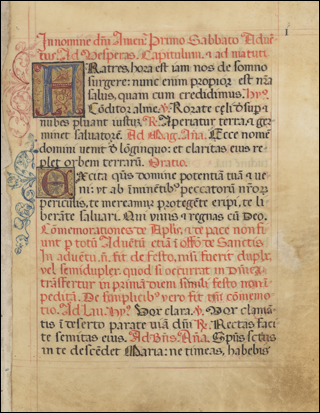 1
In nomine dñi Amen. Primo Sabbato Adue
tus. Ad Vesperas. Capitulum. & ad matuti.
FRatres, hora est iam nos de somno
surgere: nunc enim propior est nr̃a
salus, quam cum credidimus. hyꝰ.
Cõditor alme. ℣. Rorate cęli d̃sup &
nubes pluant iustũ. ℟. Aperiatur terra, & ger
minet saluatorẽ. Ad Mag. Aña. Ecce nomẽ
domini uenit d̃ lõginquo: et claritas eius re
plet orbem terrarũ. Oratio.
EXcita qũs domine potentiã tuã & ue
ni: vt ab iminẽtibꝰ peccatorũ nr̃orũ
periculis, te mereamur protegẽte eripi, te li
berãte saluari. Qui viuis & regnas cũ Deo.
Cõmemorationes de Aplis, & de pace non fi
unt p totũ Aduẽtũ etiã ĩ offõ de Sanctis
In aduẽtu. ñ. fit de festo, nisi fuerit duplx.
vel semiduplex quod si occurrat in Dñica
trãsfertur in primã diem simili festo nõ im
peditã. De simplicibꝰ vero fit tm̃ cõmemo
tio. Ad Lau. hyꝰ. Vox clara. ℣. Vox clamã
tis ĩ deserto parate uiã dñi ℟. Rectas faci
te semitas eius. Ad Bñs. Aña. Spũs sctũs
in te descẽdet Maria: ne timeas, habebis